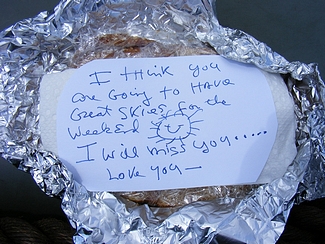 I think you
are going to HAVE
Great SKIES for the
Weekend
I will miss you.....
Love you—